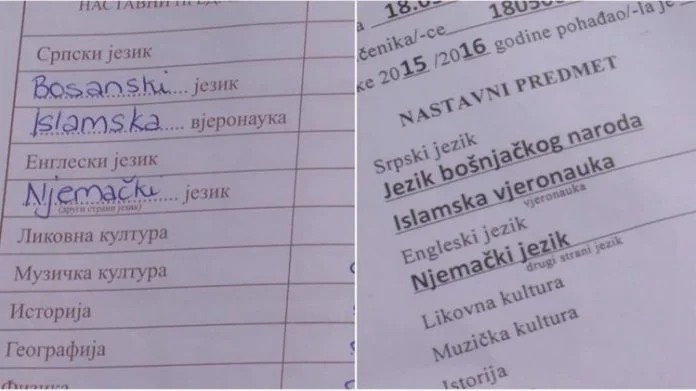 НАСТАВНИ
Српски језик
Bosanski језик
Islamska вјеронаука
Енглески језик
Njemački језик
(други страни језик)
Ликовна култура
Музичка култура
Историја
Географија
Физика
18.05
čenika/-ce 18030
ke 2015 /2016 godine pohađao/-la je
NASTAVNI PREDMET
Srpski jezik
Jezik bošnjačkog naroda
Islamska vjeronauka
vjeronauka
Engleski jezik
Njemački jezik
drugi strani jezik
Likovna kultura
Muzička kultura
Istorija